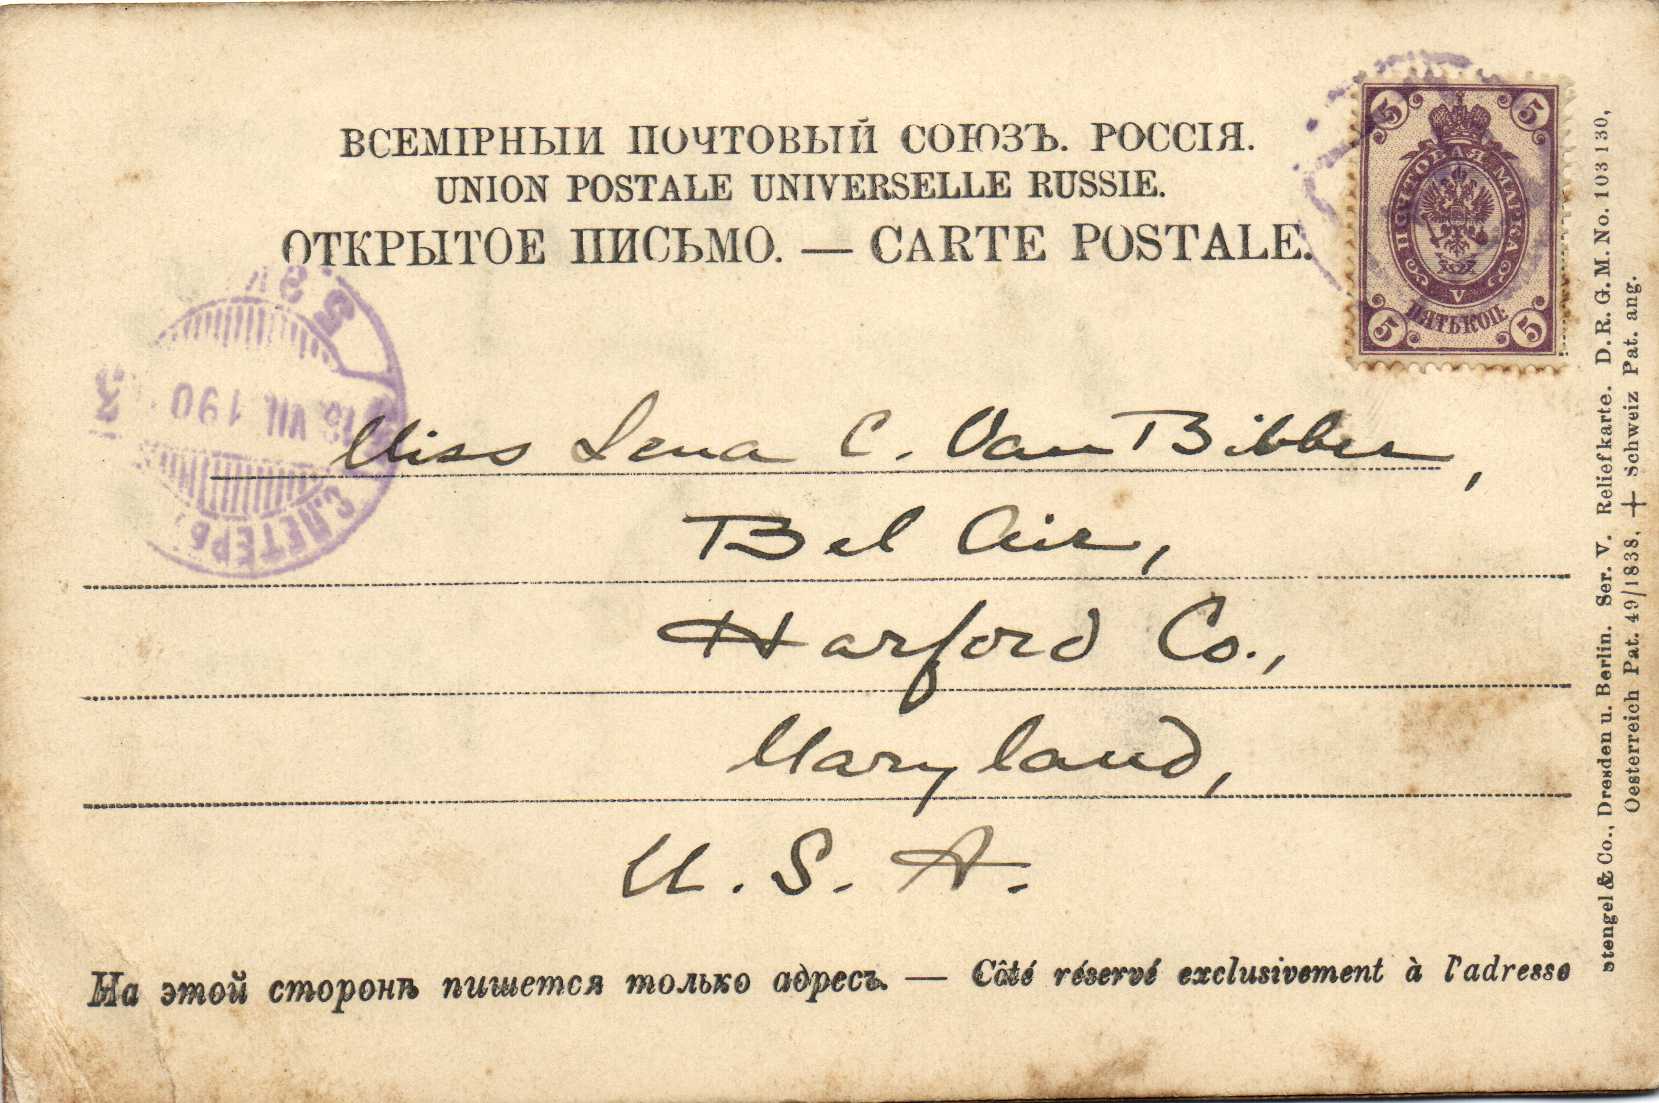 ВСЕМІРНЫЙ ПОЧТОВЫЙ СОЮЗЪ. РОССІЯ.
UNION POSTALE UNIVERSELLE RUSSIE.
ОТКРЫТОЕ ПИСЬМО. — CARTE POSTALE.
5 5
ПОЧТОВАЯ МАРКА
V
ПЯТЬ КОП.
5 5
С.ПЕТЕРБ.
VII. 190
Miss Lena C. Van Bibber,
Bel Air,
Harford Co.,
Maryland,
U. S. A.
На этой сторонѣ пишется только адресъ. — Côté réservé exclusivement à l'adresse
Stengel & Co., Dresden u. Berlin. Ser. V. Reliefkarte. D. R. G. M. No. 103 130,
Oesterreich Pat. 49/1838, + Schweiz Pat. ang.